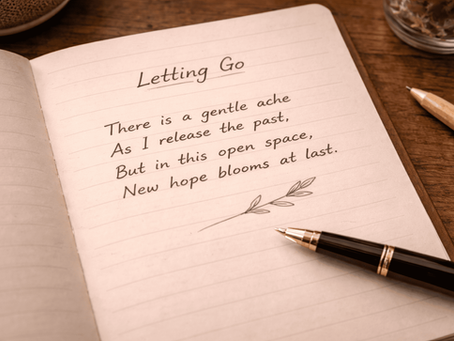 Letting Go
There is a gentle ache
As I release the past,
But in this open space,
New hope blooms at last.